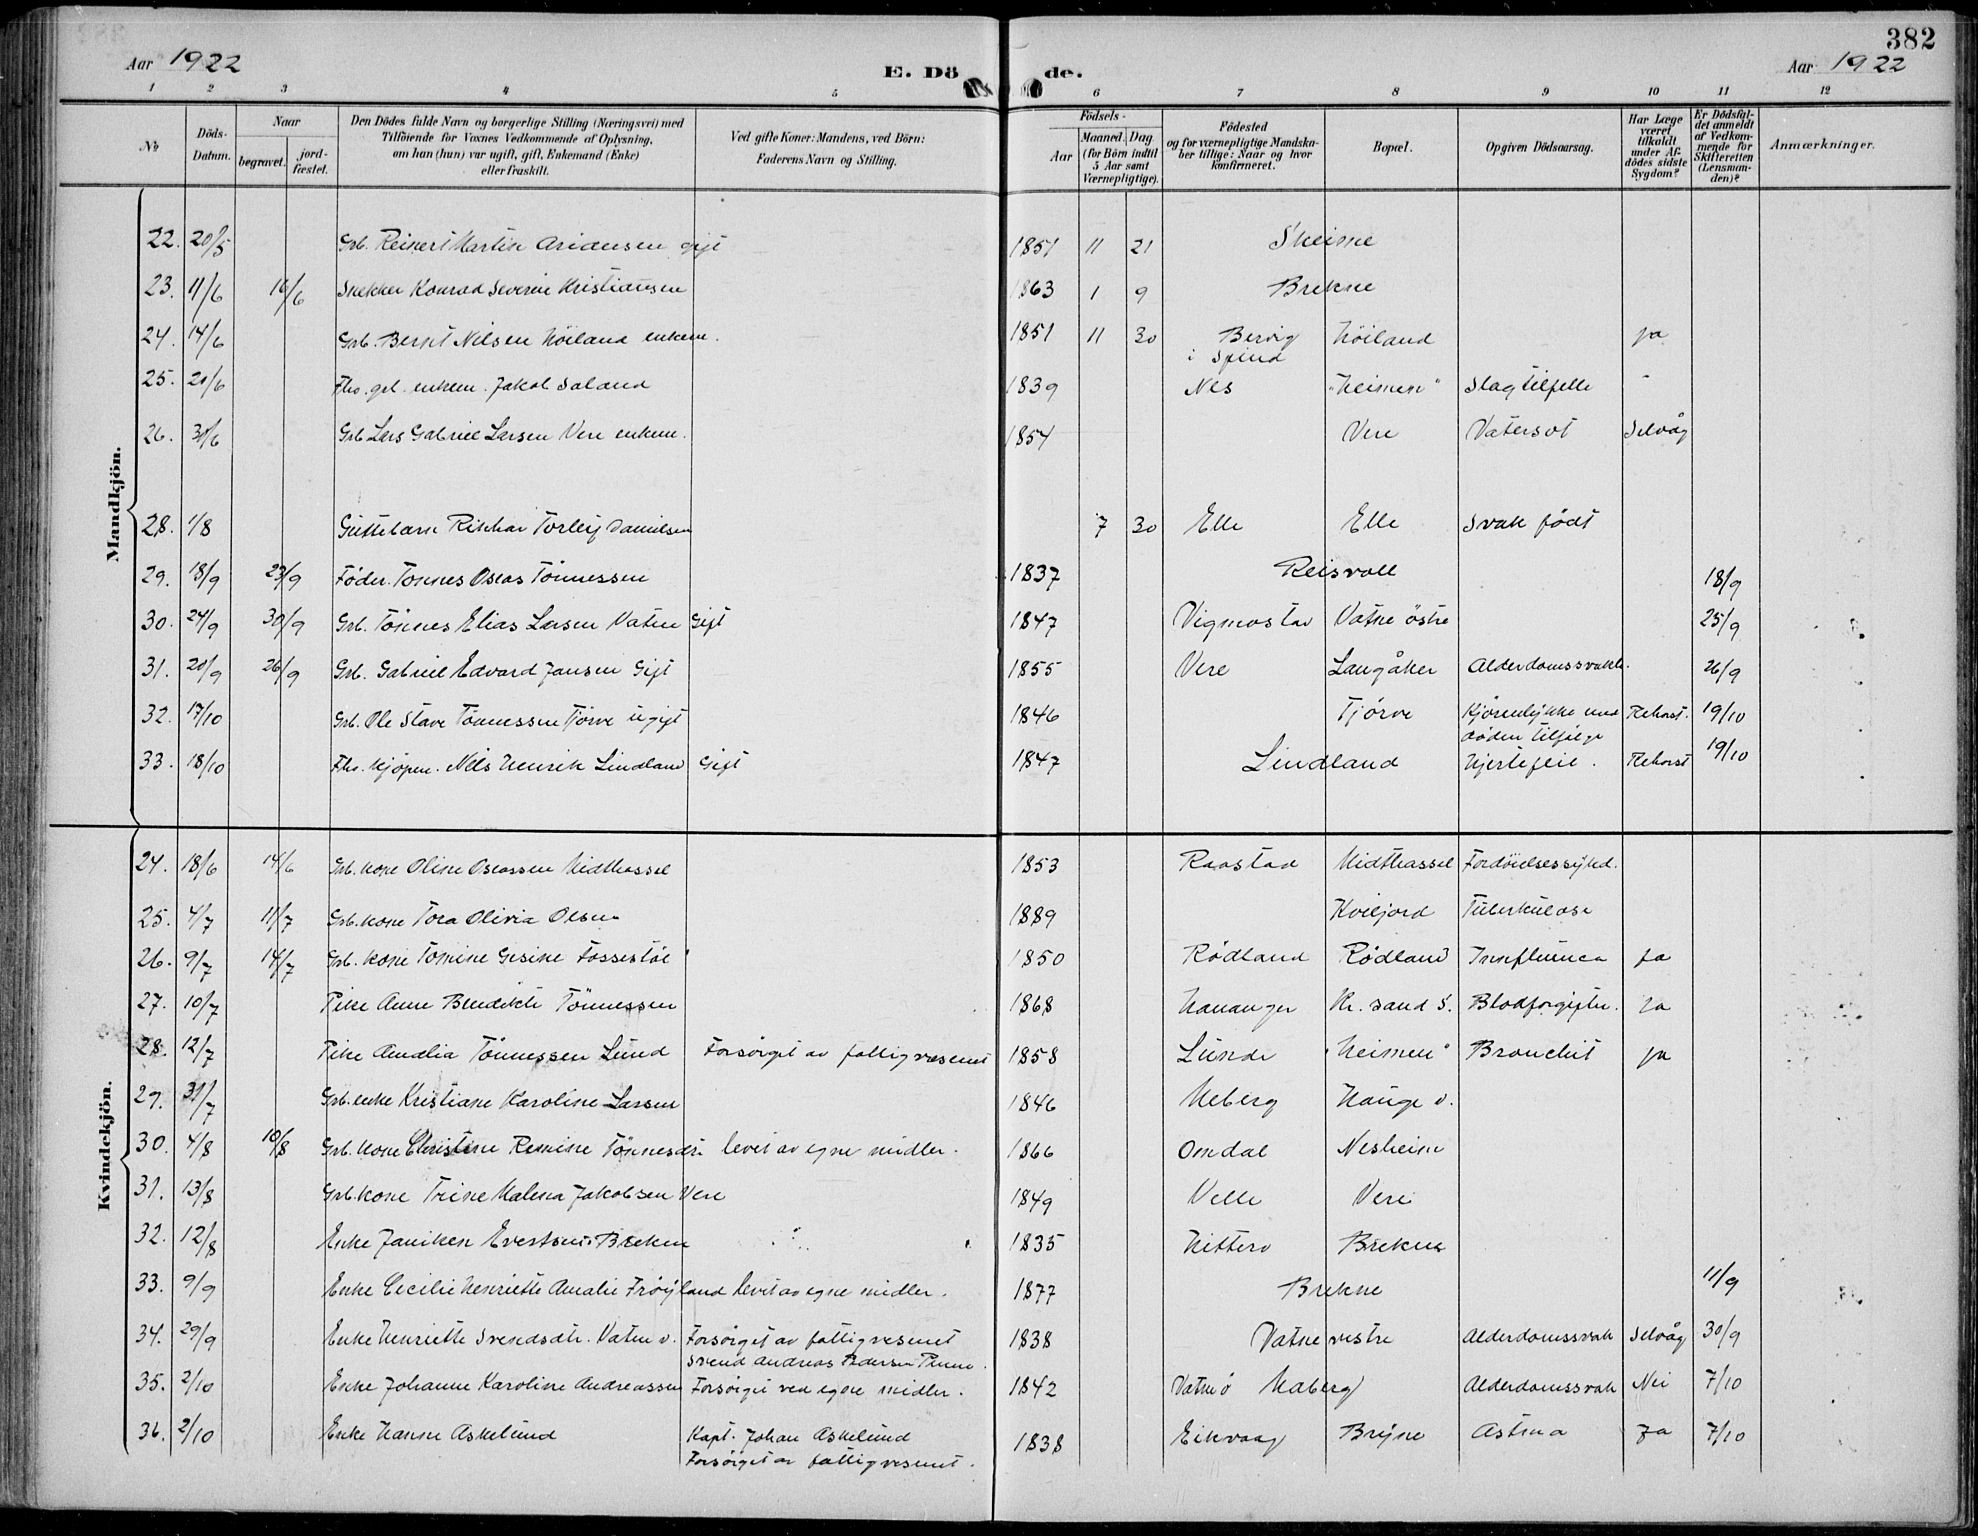 382
Aar 1922 E. Döde. Aar 1922
1 2 3 4 5 6 7 8 9 10 11 12
№ Döds-Datum. Naar begravet. jordfæstet. Den Dödes fulde Navn og borgerlige Stilling (Næringsvei) med Tilföiende for Voxnes Vedkommende af Oplysning, om han (hun) var ugift, gift, Enkemand (Enke) eller fraskilt. Ved gifte Koner: Mandens, ved Börn: Faderens Navn og Stilling. Födsels- Aar Maaned. Dag (for Börn indtil 5 Aar samt Værnepligtige). Födested og for værnepligtige Mandskaber tillige: Naar og hvor konfirmeret. Bopæl. Opgiven Dödsaarsag. Har Læge været tilkaldt under Afdödes sidste Sygdom? Er Dödsfaldet anmeldt af Vedkommende for Skifteretten (Lensmanden)? Anmærkninger.
Mandkjön.
22. 20/5 Grb. Reinert Martin Ariansen gift 1851 11 21 Skeime
23. 11/6 16/6 Snekker Konrad Severin Kristiansen 1863 1 9 Brekne
24. 14/6 Grb. Bernt Nilsen Höiland enkem. 1851 11 30 Bervig i Spind Höiland ja
25. 20/6 Fhv. grb. enkem. Jakob Saland 1839 Nes "Heimen" Slagtilfelle "
26. 30/6 Grb Lars Gabriel Larsen Vere enkem. 1854 Vere Vatersot Selvåg
28. 1/8 Guttebarn Rikhar Torleif Danielsen 7 30 Elle Elle Svak födt
29. 18/9 23/9 Föder. Tönnes Oseas Tönnessen 1837 Reisvoll 18/9
30. 24/9 30/9 Grb. Tönnes Elias Larsen Vatne Gift 1847 Vigmostad Vatne östre 25/9
31. 20/9 26/9 Grb. Gabriel Edvard Jansen Gift 1855 Vere Langåker Alderdomssvakh. 26/9
32. 17/10 Grb. Ole Stave Tönnessen Tjörve ugift 1846 Tjörve Kjöreulykke med döden tilfölge Rehorst. 19/10
33. 18/10 Fhv. kjöpm. Nils Henrik Lindland Gift 1847 Lindland Hjertefeil. Rehorst 19/10
Kvindekjön.
24. 18/6 14/6 Grb. kone Oline Oseassen Midthassel 1853 Raastad Midthassel Fordöielsessykd.
25. 4/7 11/7 Grb. kone Tora Olivia Olsen 1889 Kviljord Tuberkulose
26. 9/7 14/7 Grb. kone Tomine Gesine Fossestöl 1850 Rödland Rödland Innfluenca ja
27. 10/7 Pike Anne Bendikte Tönnessen 1868 Hananger Kr. sand S. Blodforgiftn. Ja
28. 12/7 Pike Amalia Tönnessen Lund Forsörget av fattigvesenet 1858 Lunde "Heimen" Bronchit ja
29. 31/7 Grb. enke Kristiane Karoline Larsen 1846 Meberg Hauge v.
30. 4/8 10/8 Grb. kone Christine Remine Tönnesdt. levet av egne midler. 1866 Omdal Nesheim
31. 13/8 Grb. kone Trine Malena Jakobsen Vere 1849 Velle Vere
32. 12/8 Enke Janiken Evertsen Brekne " 1835 Hitterö Brekne
33. 9/9 Enke Cecilie Henriette Amalie Fröyland levet av egne midler. 1877 Brekne 11/9
34. 29/9 Enke Henriette Svendsdtr. Vatne v. Forsörget av fattigvesenet 1838 Vatne vestre Alderdomssvak Selvåg 30/9
Svend Andreas Pedersen
35. 2/10 Enke Johanne Karoline Andreassen Forsörget ved egne midler. 1842 Vatne ö Maberg Alderdomssvak Nei 7/10
36. 2/10 Enke Hanne Askelund Kapt. Johan Askelund 1838 Eikvaag Bryne Astma Ja 7/10
Forsörget av fattigvesenet.